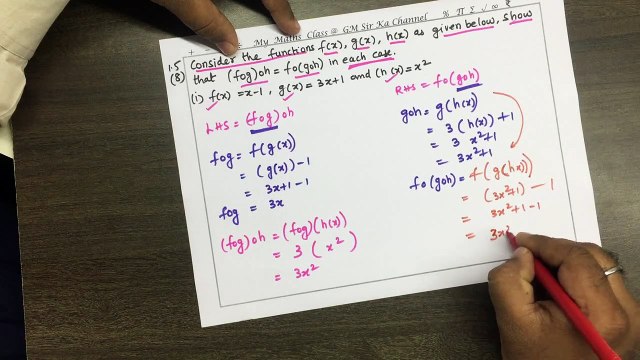 My Maths Class @ GM Sir Ka Channel % Π Σ √ ∞
1.5 Consider the functions f(x), g(x), h(x) as given below, show
(8) that (fog)oh = fo(goh) in each case.
(i) f(x) = x-1, g(x) = 3x+1 and (h(x) = x²
LHS = (fog)oh
fog = f(g(x))
= (g(x)) - 1
= 3x+1-1
fog = 3x
(fog)oh = (fog)(h(x))
= 3 (x²)
= 3x²
RHS = fo(goh)
goh = g(h(x))
= 3 (h(x)) + 1
= 3 x²+1
= 3x²+1
fo(goh) = f(g(hx))
= (3x²+1) - 1
= 3x²+1-1
= 3x²